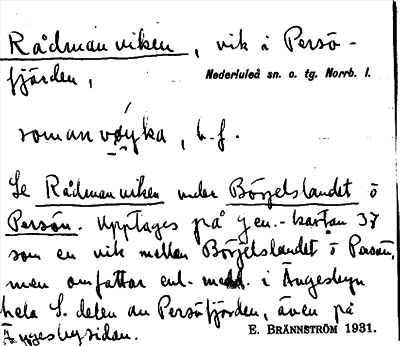 Rådmanviken, vik i Persö-
fjärden,
Nederluleå sn. o. tg. Norrb. l.
b. f.
Se Rådmanviken under Börjelslandet ö
Persön. Upptages på Gen.-kartan 37
som en vik mellan Börjelslandet ö Persön,
men omfattar enl. medd. i Ängesbyn
hela S. delen av Persöfjärden, även på
Ängesbysidan.
E. BRÄNNSTRÖM 1931.